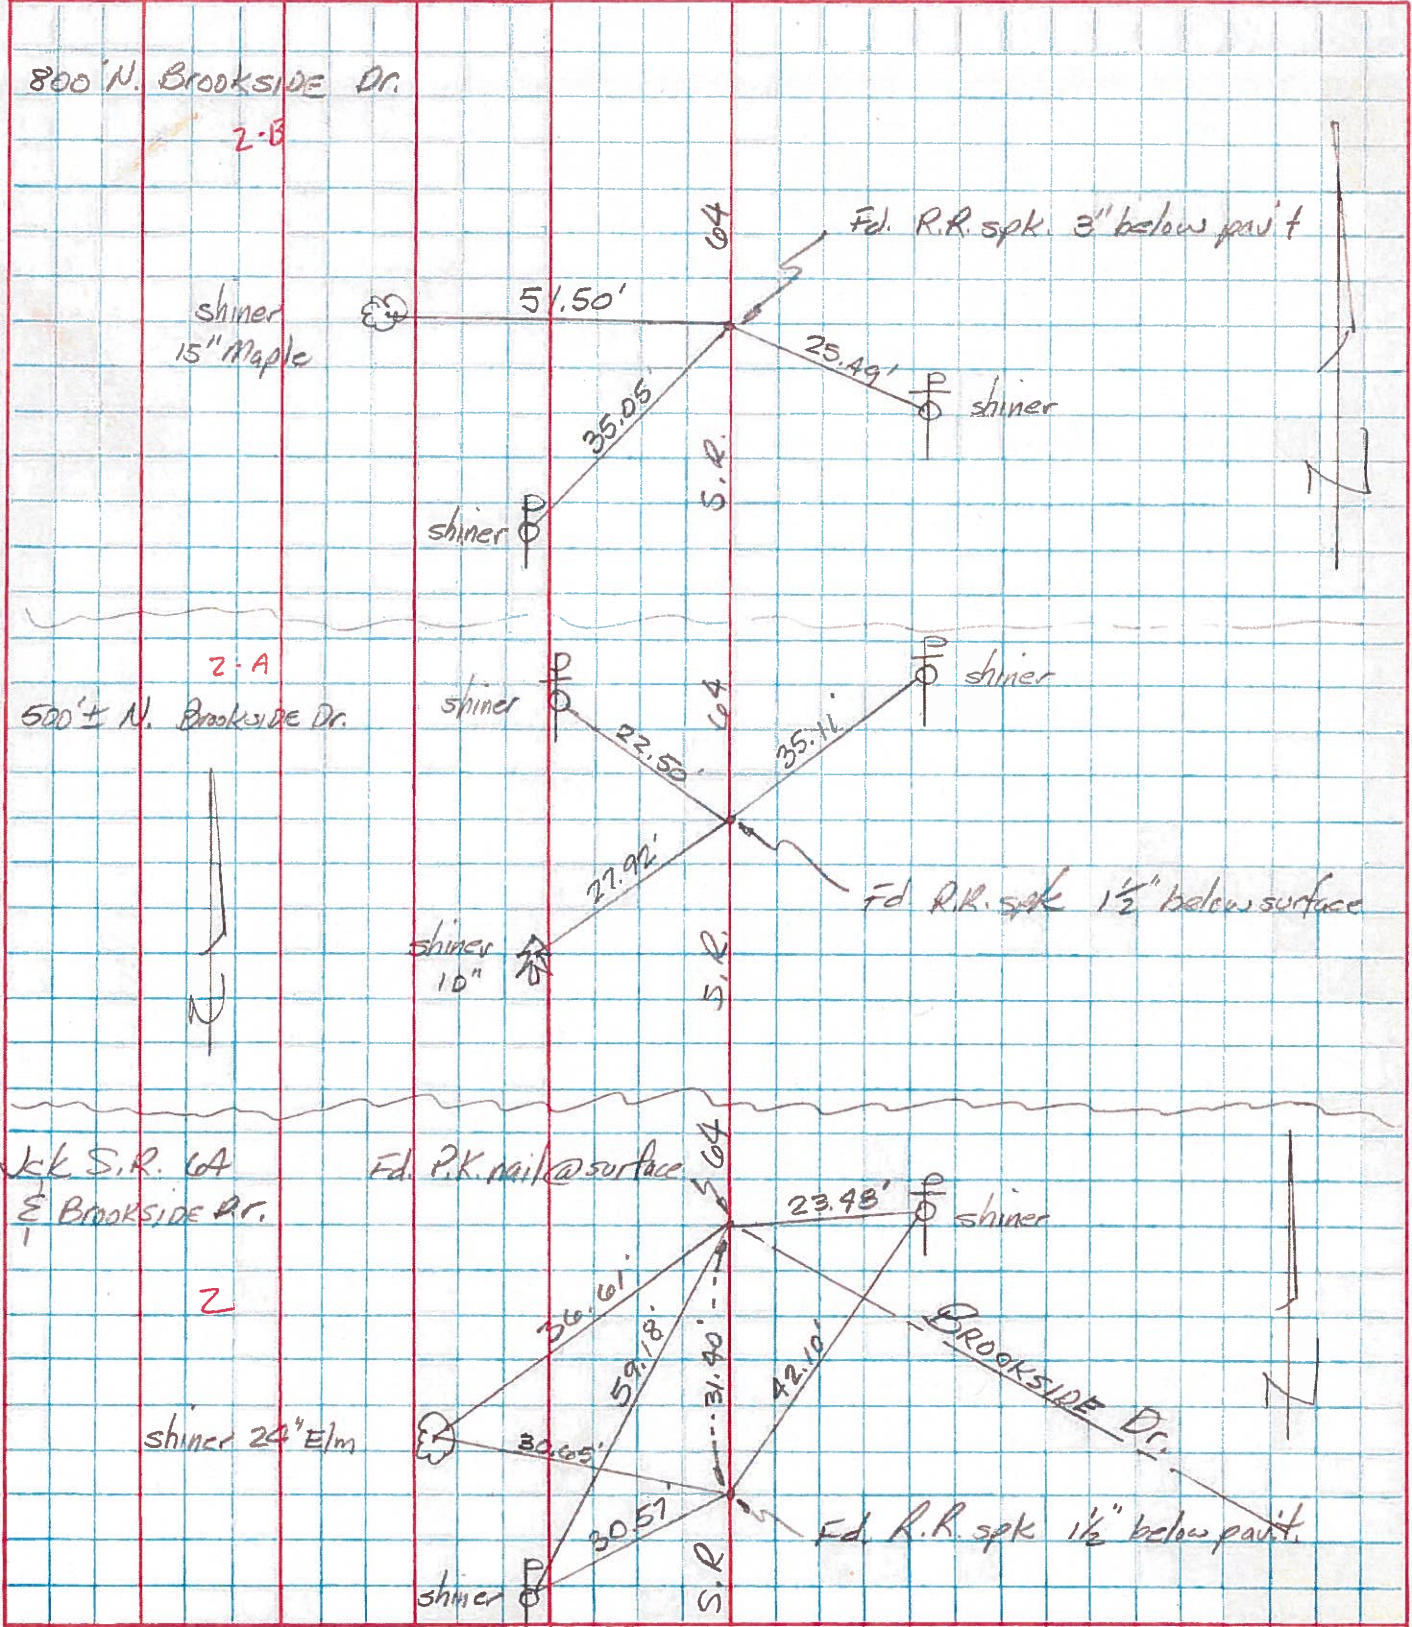 800' N. BROOKSIDE Dr.
2-B
Fd. R.R. spk. 3" below pav't
64
51.50'
shiner
15" Maple
25.49'
shiner
35.05'
S.R.
shiner
N
2-A
shiner
64
shiner
500'± N. BROOKSIDE Dr.
22.50'
35.11'
27.92'
Fd R.R. spk 1½" below surface
shiner
10"
S.R.
N
S.R. 64
& BROOKSIDE Dr.
Fd. P.K. nail @ surface
64
23.48'
shiner
2
36.61'
59.18'
31.40'
42.10'
BROOKSIDE Dr.
N
shiner 24" Elm
30.65'
30.57'
Fd. R.R. spk 1½" below pav't.
S.R
shiner